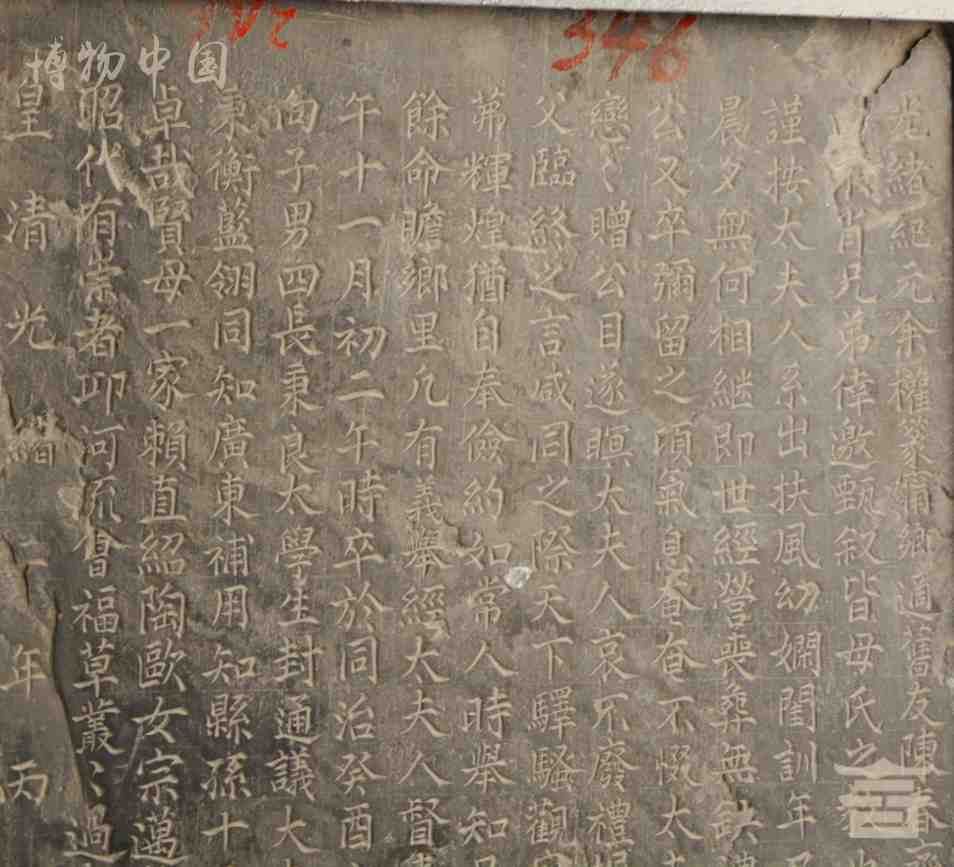 346
博物中国
光緒紀元余權篆甯鄉適舊友陳春
不肖兄弟倖邀甄叙皆母氏之
謹按太夫人系出扶風幼嫻閨訓年
晨夕無何相繼即世經營喪葬無缺禮
公又卒彌留之頃氣息奄奄不慨太夫
戀〻贈公目遂瞑太夫人哀不廢禮
父臨終之言咸同之際天下驛騷觀
茀輝煌猶自奉儉約如常人時舉知
餘命瞻鄉里凢有義舉經太夫人督
午十一月初二午時卒於同治癸酉
向子男四長秉良太學生封通議大
秉衡藍翎同知廣東補用知縣孫十
卓哉賢母一家賴直紹陶歐女宗邁
昭代有崇者卭河流曾福草叢〻過
皇清光緒二年丙